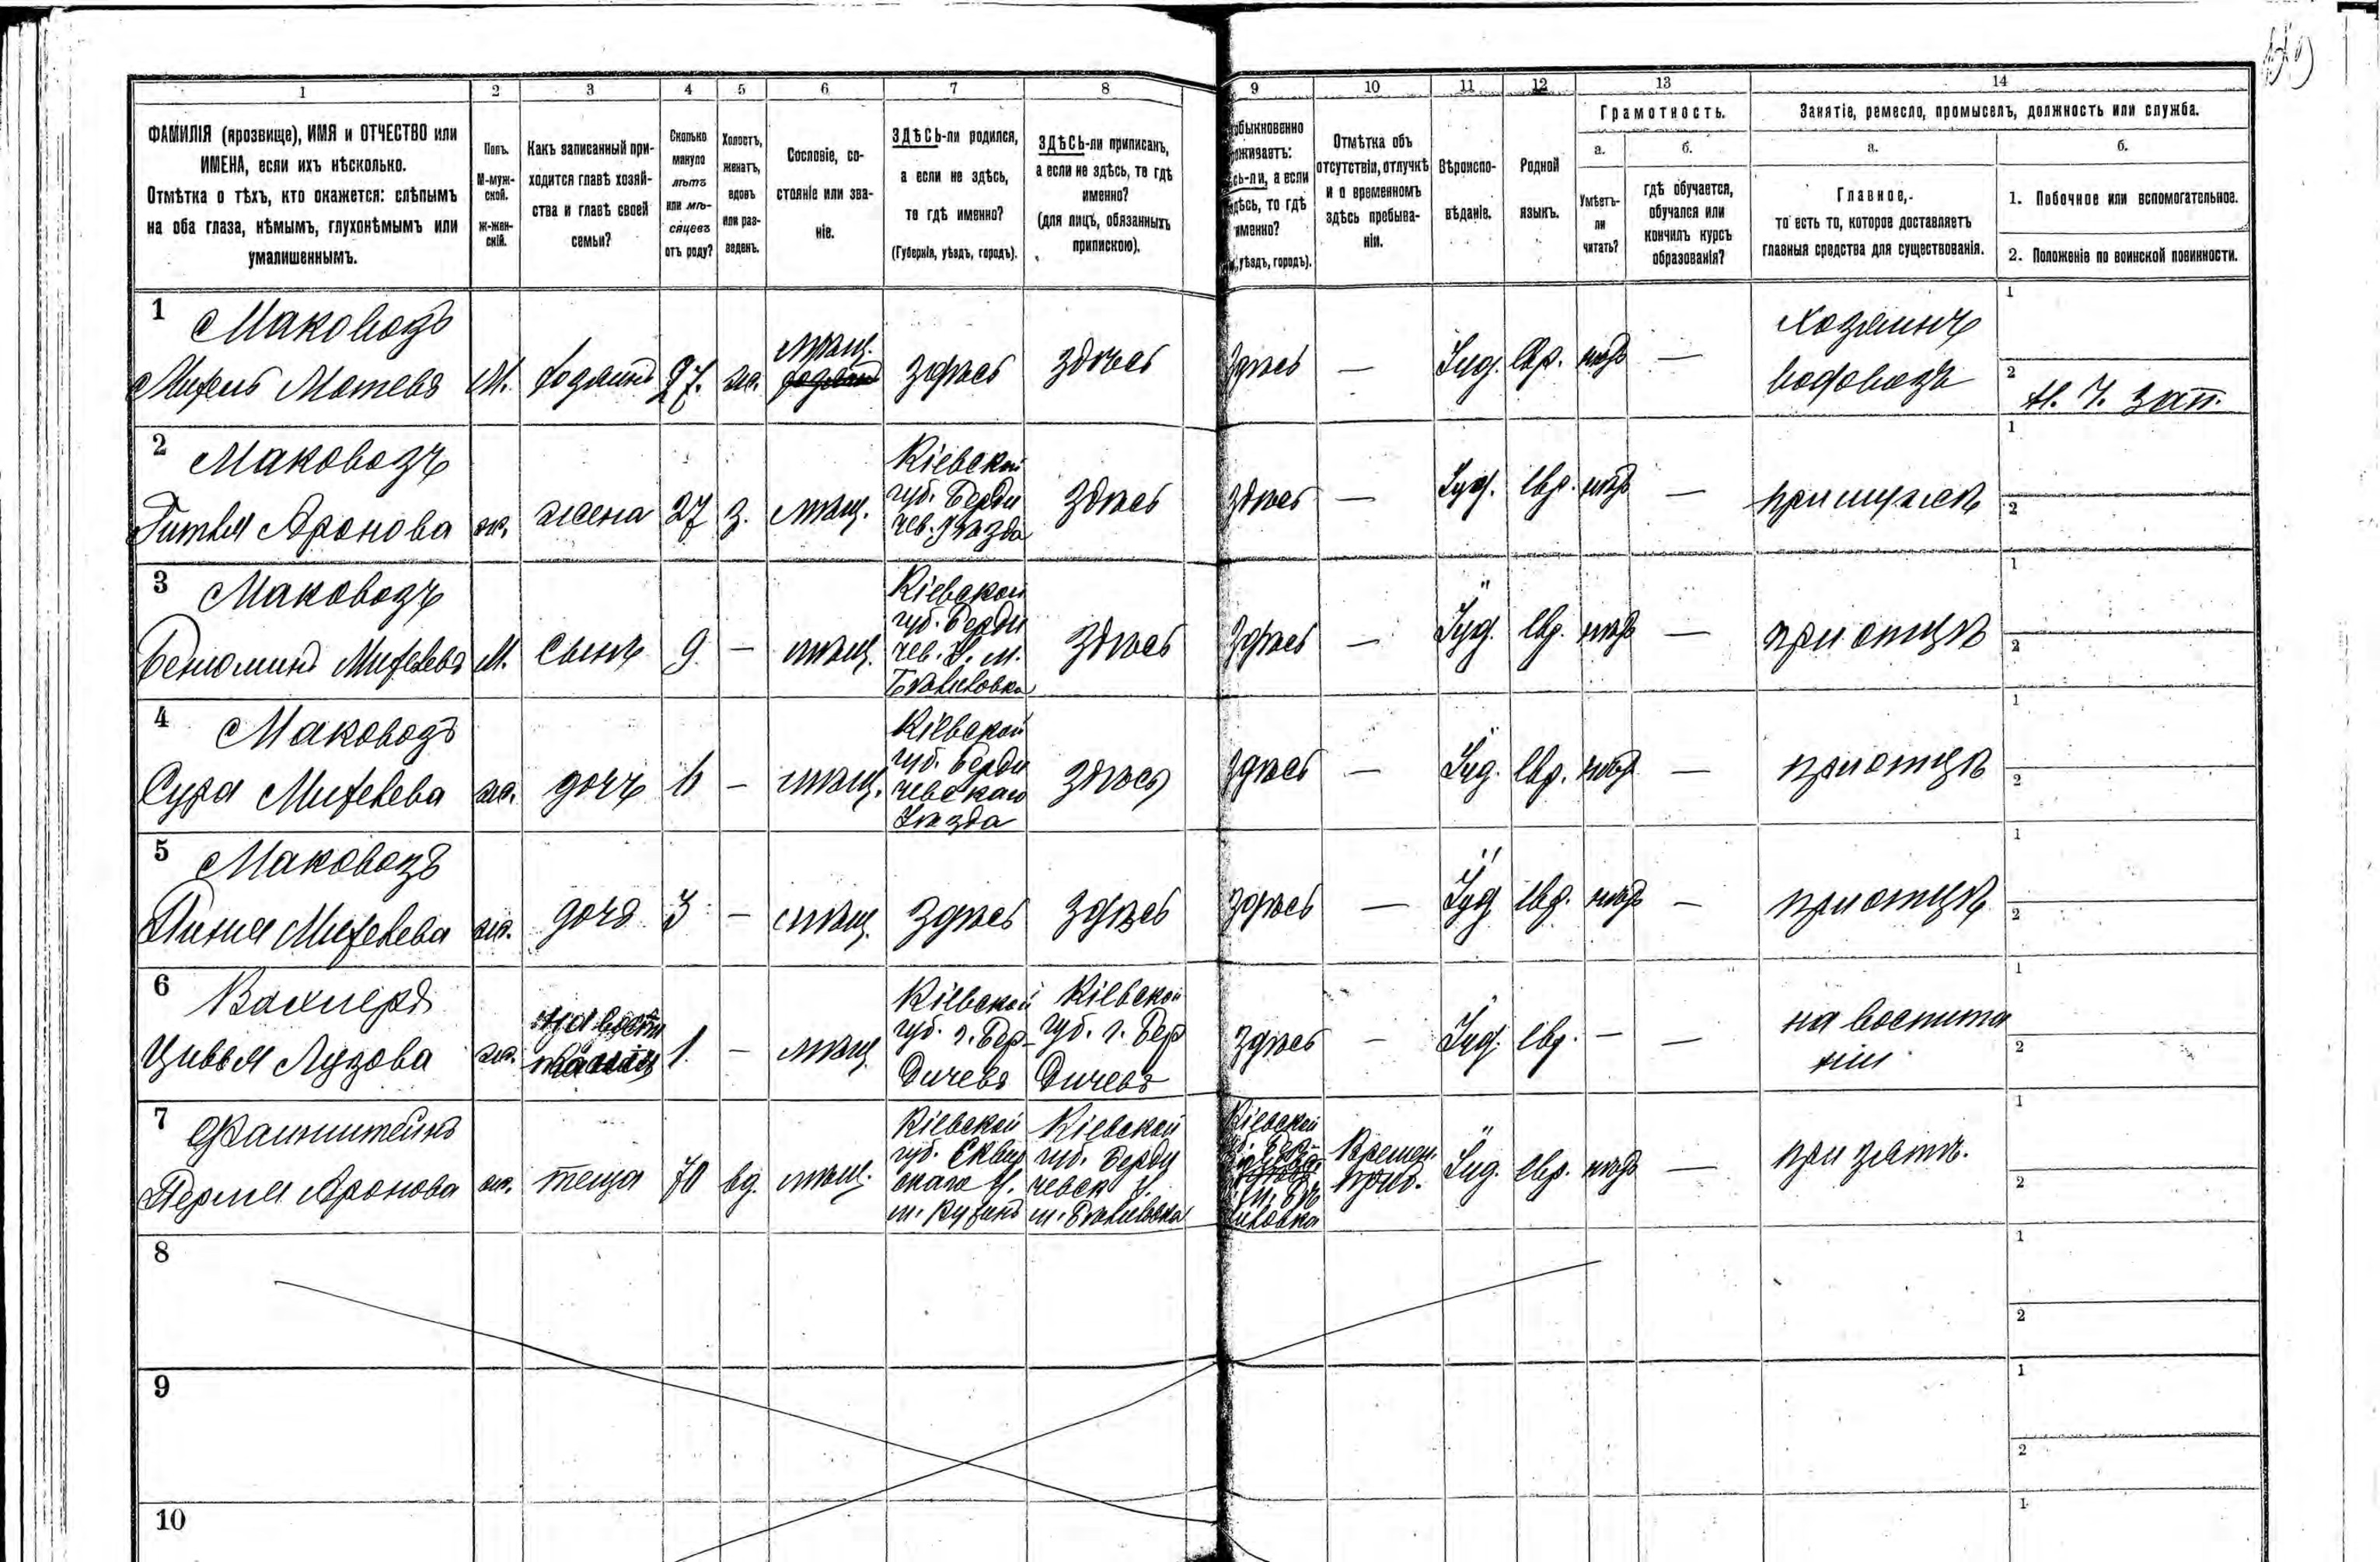 1 2 3 4 5 6 7 8 9 10 11 12 13 14
ФАМИЛІЯ (прозвище), ИМЯ и ОТЧЕСТВО или
ИМЕНА, если ихъ нѣсколько.
Отмѣтка о тѣхъ, кто окажется: слѣпымъ
на оба глаза, нѣмымъ, глухонѣмымъ или
умалишеннымъ.
Полъ.
М-муж-
ской.
ж-жен-
скій.
Какъ записанный при-
ходится главѣ хозяй-
ства и главѣ своей
семьи?
Сколько
минуло
лѣтъ
или мѣ-
сяцевъ
отъ роду?
Холостъ,
женатъ,
вдовъ
или раз-
веденъ.
Сословіе, со-
стояніе или зва-
ніе.
ЗДѢСЬ-ли родился,
а если не здѣсь,
то гдѣ именно?
(Губернія, уѣздъ, городъ).
ЗДѢСЬ-ли приписанъ,
а если не здѣсь, то гдѣ
именно?
(для лицъ, обязанныхъ
припискою).
обыкновенно
оживаетъ:
сь-ли, а если
здѣсь, то гдѣ
именно?
уѣздъ, городъ).
Отмѣтка объ
отсутствіи, отлучкѣ
и о временномъ
здѣсь пребыва-
ніи.
Вѣроиспо-
вѣданіе.
Родной
языкъ.
Грамотность.
а.
Умѣетъ-
ли
читать?
б.
гдѣ обучается,
обучался или
кончилъ курсъ
образованія?
Занятіе, ремесло, промыселъ, должность или служба.
а.
Главное,
то есть то, которое доставляетъ
главныя средства для существованія.
б.
1. Побочное или вспомогательное.
2. Положеніе по воинской повинности.
1
Маковозъ
Михель Мотевъ
М.
хозяинъ
27.
ж.
мѣщ.
здѣсь
здѣсь
здѣсь
—
Іуд.
евр.
нѣтъ
—
Хозяинъ
водовозъ
1
2
зап.
2
Маковозъ
Гитля Аронова
ж.
жена
27
з.
мѣщ.
Кіевской
губ. Берди
чев. уѣзда
здѣсь
здѣсь
—
Іуд.
евр.
нѣтъ
—
при мужѣ
1
2
3
Маковозъ
Беніоминъ Михелевъ
М.
сынъ
9
—
мѣщ.
Кіевской
губ. Берди
чев. у. м.
здѣсь
здѣсь
—
Іуд.
евр.
нѣтъ
—
при отцѣ
1
2
4
Маковозъ
Сура Михелева
ж.
дочь
—
мѣщ.
Кіевской
губ. Берди
чевскаго
уѣзда
здѣсь
здѣсь
—
Іуд.
евр.
нѣтъ
—
при отцѣ
1
2
5
Маковозъ
Михелева
ж.
дочь
3
—
мѣщ.
здѣсь
здѣсь
здѣсь
—
Іуд.
евр.
нѣтъ
—
при отцѣ
1
2
6
Цивья Лузова
ж.
1.
—
мѣщ.
Кіевской
губ. г. Бер-
дичевъ
Кіевской
губ. г. Бер
дичевъ
здѣсь
—
Іуд.
евр.
—
—
на воспита
ніи
1
2
7
Файнштейнъ
Перля Аронова
ж.
теща
70
вд.
мѣщ.
Кіевской
губ. Сквир
скаго у.
м. Ружинъ
Кіевской
губ. Берди
чевск у.
Кіевской
Времен.
Іуд.
евр.
нѣтъ
—
при зятѣ.
1
2
8
1
2
9
1
2
10
1